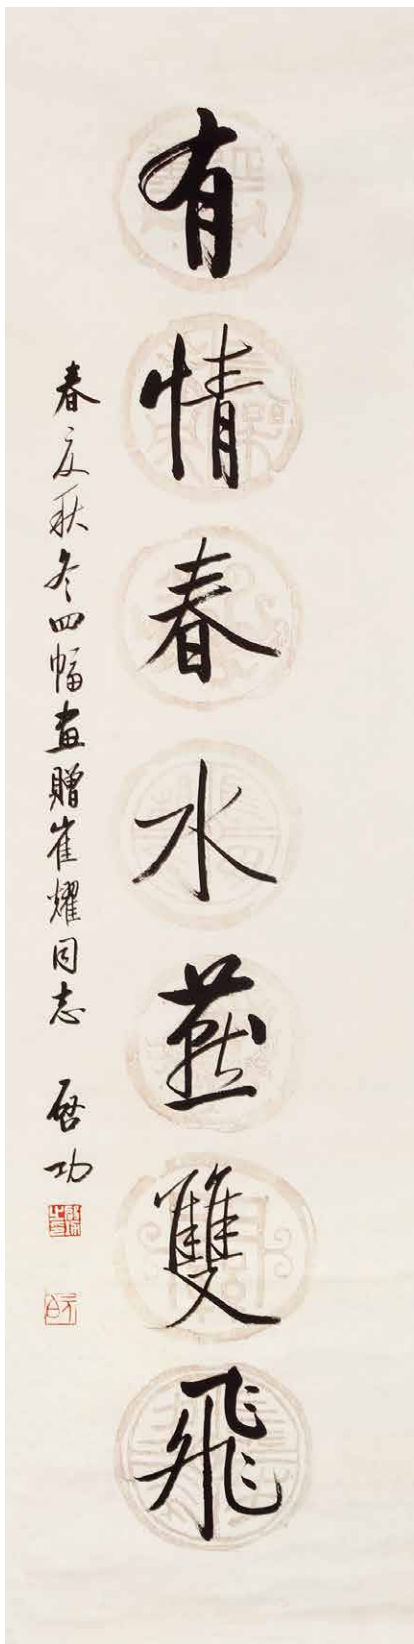 有情春水燕雙飛
春夏秋冬四幅畫贈崔耀同志 啓功